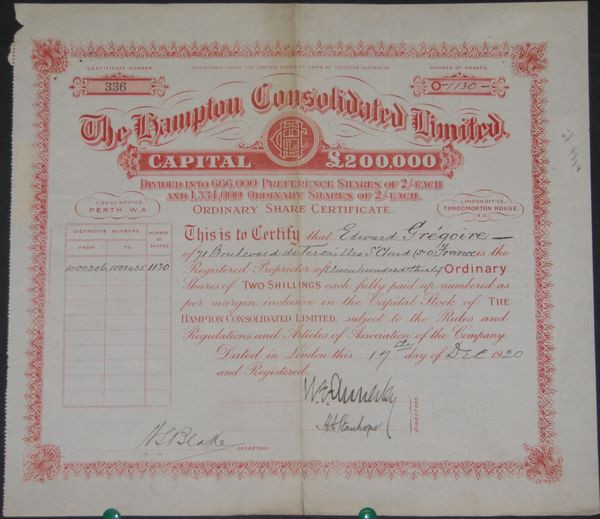 CERTIFICATE NUMBER.
REGISTERED UNDER THE LIMITED LIABILITY LAWS OF WESTERN AUSTRALIA
NUMBER OF SHARES.
336
1130
The Hampton Consolidated Limited.
CAPITAL £200,000
DIVIDED INTO 666,000 PREFERENCE SHARES OF 2/- EACH
AND 1,334,000 ORDINARY SHARES OF 2/- EACH.
ORDINARY SHARE CERTIFICATE.
LOCAL OFFICE,
PERTH, W.A.
LONDON OFFICE,
THROGMORTON HOUSE,
E.C.
DISTINCTIVE NUMBERS
NUMBER OF SHARES
FROM TO
1000306 1001435 1130
This is to Certify that Edward Grégoire
of 71 Boulevard de Versailles St Cloud (S-O) France is the
Registered Proprietor of Eleven hundred thirty Ordinary
Shares of TWO SHILLINGS each, fully paid up, numbered as
per margin, inclusive in the Capital Stock of THE
HAMPTON CONSOLIDATED LIMITED, subject to the Rules and
Regulations and Articles of Association of the Company.
Dated in London this 17th day of DEC 1920
and Registered.
H A Stanhope
DIRECTORS
H S Blake
SECRETARY